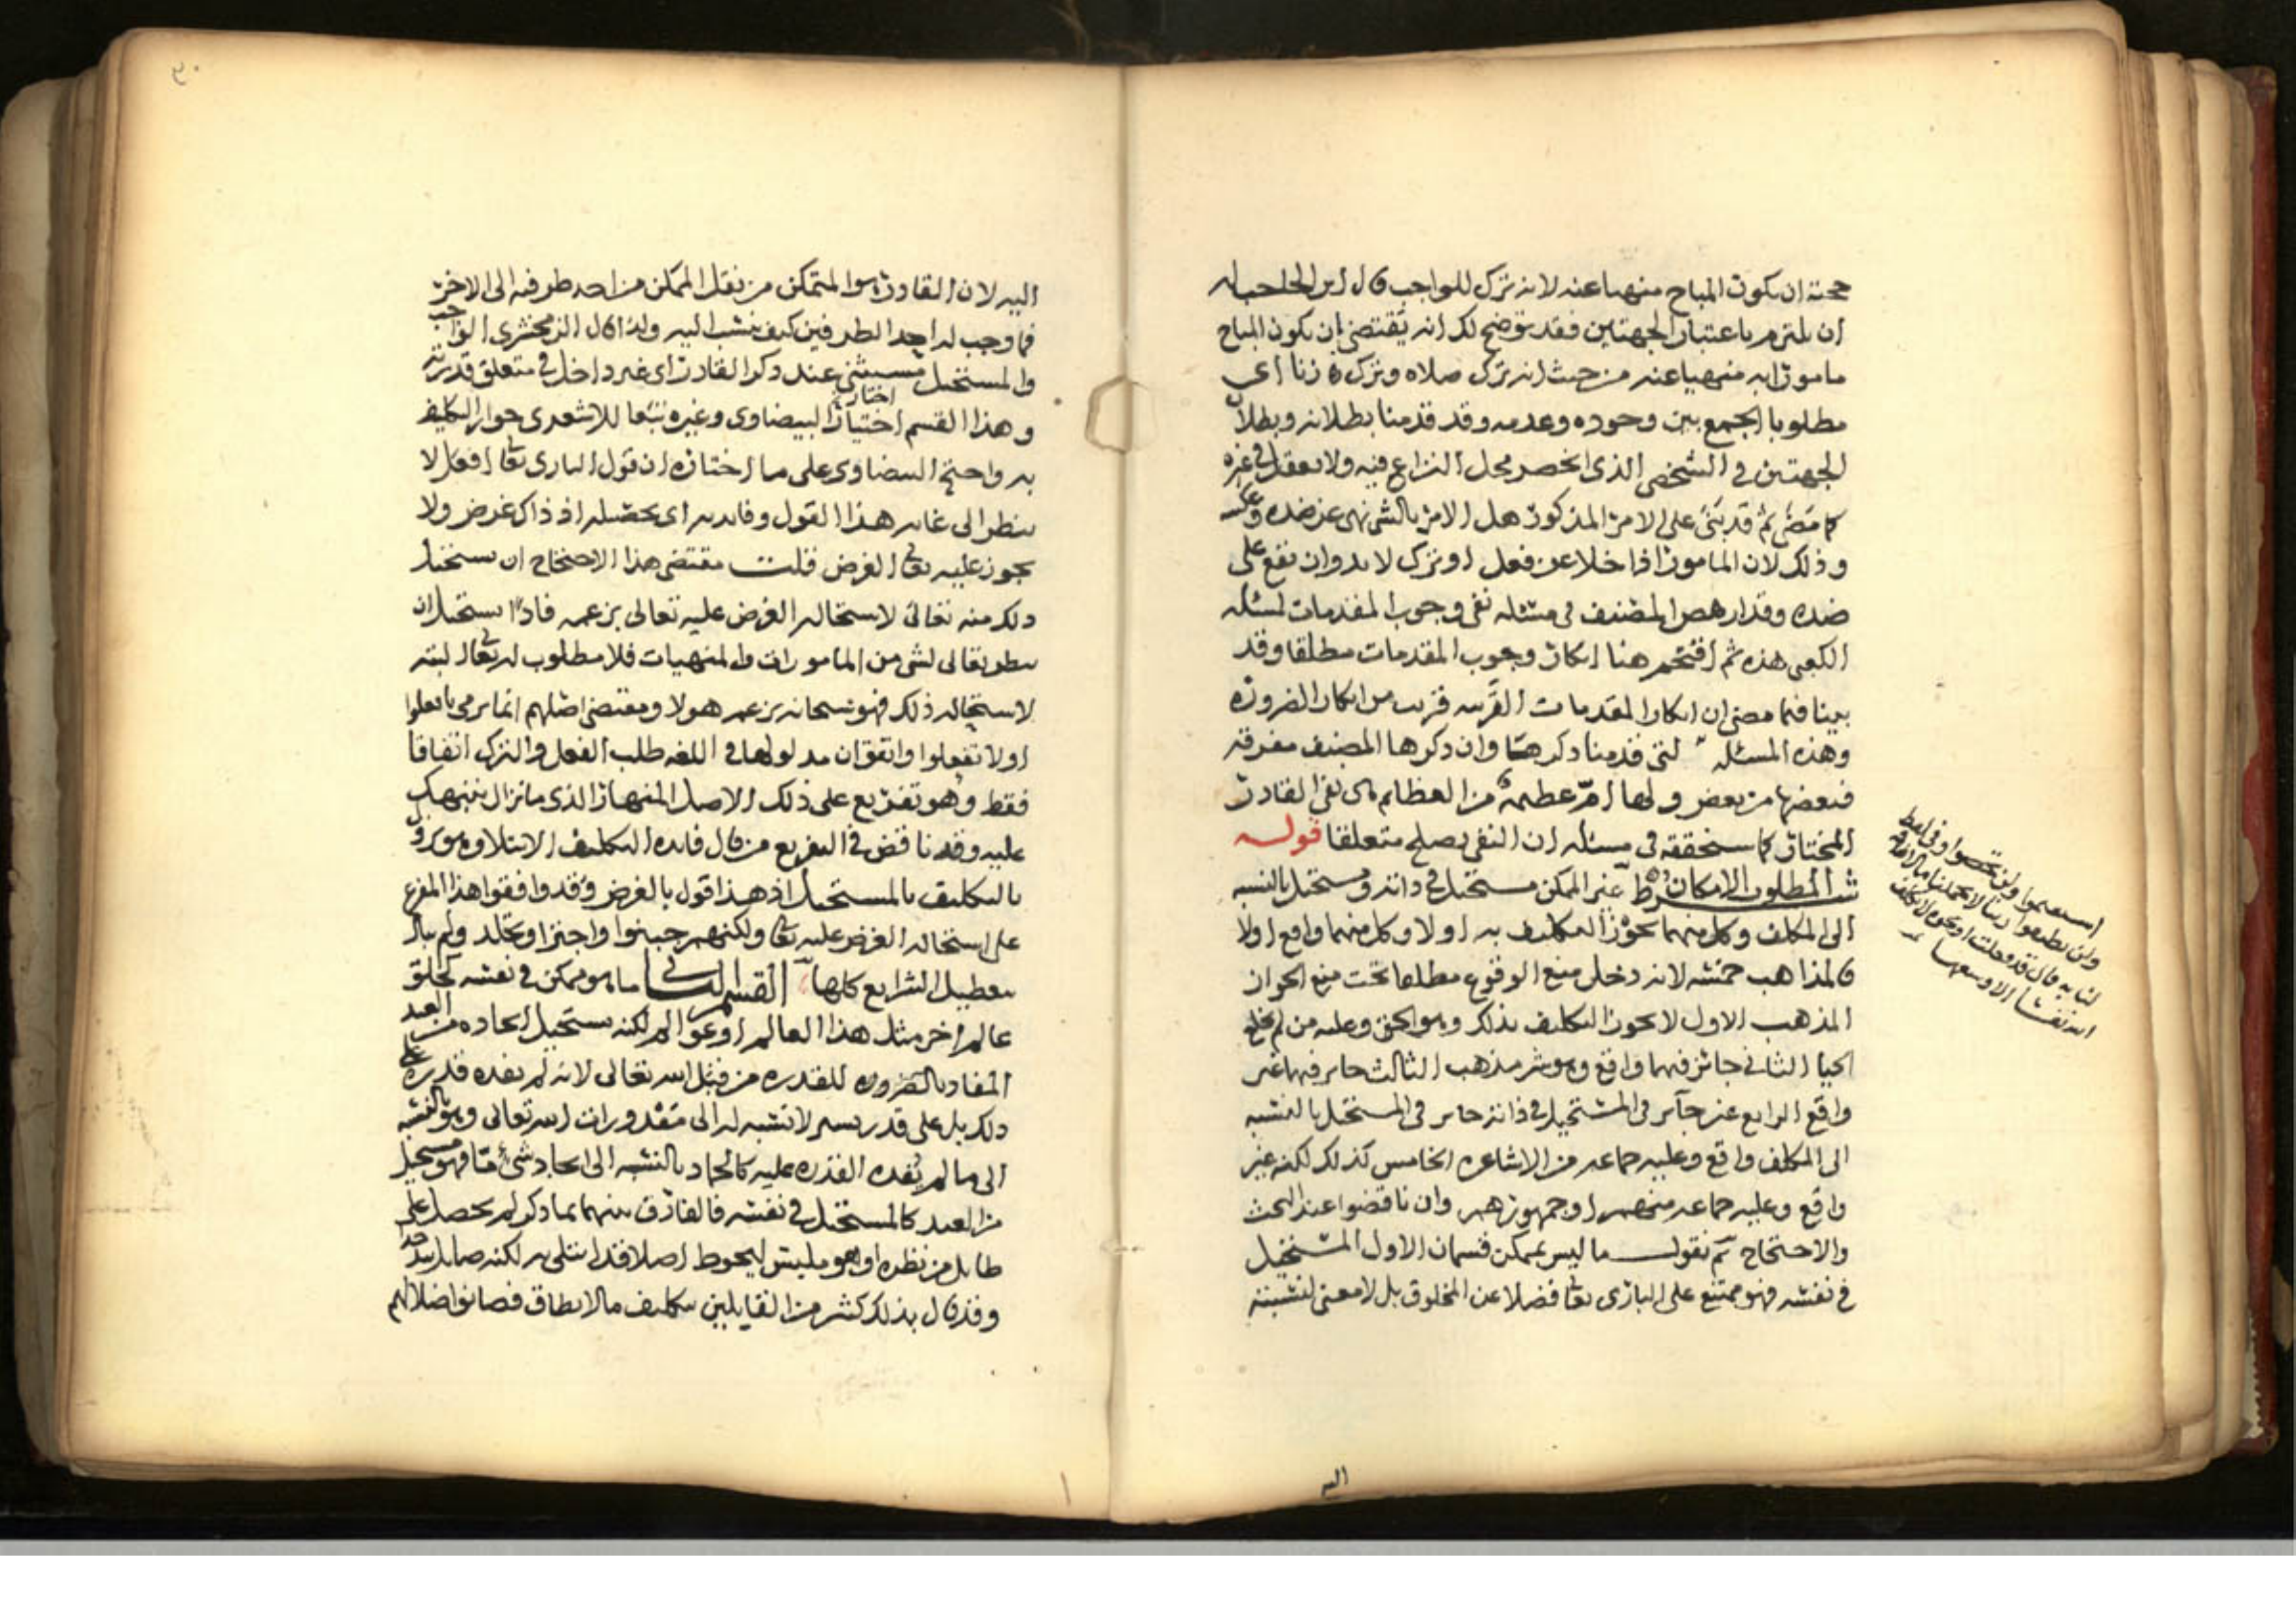 حجته ان يكون المباح منهيا عنه لانه ترك للواجب قال ابن الحاجب له
ان يلتزم باعتبار الجهتين فقد توضح لك انه يقتضي ان يكون المباح
مامورا به منهيا عنه من حيث انه ترك صلاه وترك زنا اي
مطلوبا الجمع بين وجوده وعدمه وقد قدمنا بطلانه وبطلان
الجهتين في الشخصي الذي انحصر محل النزاع فيه ولا يعقل في غيره
كما مضى ثم قد بنى على الامر المذكور هل الامر بالشي نهي عن ضده وعكسه
وذلك لان المامور اذا خلا عن فعل او ترك لا بد وان يقع على
ضده وقد ارهص المصنف في مسئله نفي وجوب المقدمات لمسئله
الكعبي هذه ثم اقتحم هنا انكار وجوب المقدمات مطلقا وقد
بينا فيما مضى ان انكار المقدمات القريبه قريب من انكار الضروره
وهذه المسئله لتي قدمنا ذكرها وان ذكرها المصنف مفرقه
فبعضها من بعض ولها ام عظيمة من العظايم هي نفي القادر
المختار كما سنحققه في مسئله ان النفي يصلح متعلقا قوله
شرط المطلوب الامكان غير الممكن مستحيل في ذاته ومستحيل بالنسبه
الى المكلف وكل منهما يجوز التكليف به او لا وكل منهما واقع او لا
فالمذاهب خمسه لانه دخل منع الوقوع مطلقا تحت منع الجواز
المذهب الاول لا يجوز التكليف بذلك وهو الحق وعليه من لم يخلع
الحيا الثاني جائز فيهما واقع وهو شر مذهب الثالث جايز فيهما غير
واقع الرابع غير جآيز في المستحيل في ذاته جايز في المستحيل بالنسبه
الى المكلف واقع وعليه جماعه من الاشاعره الخامس كذلك لكنه غير
واقع وعليه جماعه منهم او جمهورهم وان ناقضوا عند البحث
والاحتجاج ثم نقول ما ليس بممكن قسمان الاول المستحيل
في نفسه فهو ممتنع على الباري تعا فضلا عن المخلوق بل لا معنى لنسبته
اليه
ولن تطيعوا ربنا لا تحملنا ما لا طاقة
لنا به قال قد فعلت
الله نفسا الا وسعها
٣٠
اليه لان القادر هو المتمكن من نقل الممكن من احد طرفيه الى الاخر
فما وجب له احد الطرفين كيف ينسب اليه ولذا قال الزمخشري الواجب
والمستحيل مستثنى عند ذكر القادر اي غير داخل في متعلق قدرته
وهذا القسم اختيار البيضاوي وغيره تبعا للاشعري جواز التكليف
به واحتج البيضاوي على ما اختاره ان قول الباري تعا افعل لا
ينظر الى غايه هذا القول وفايدته اي تحصيله اذ ذاك غرض ولا
يجوز عليه تعا الغرض قلت مقتضى هذا الاحتجاج ان يستحيل
ذلك منه تعالى لاستحاله الغرض عليه تعالى بزعمه فاذا استحيل ان
ينظر تعالى لشي من المامورات والمنهيات فلا مطلوب له تعالى البته
لاستحاله ذلك فهو سبحانه بزعم هولا ومقتضى اصلهم انما يرمي بافعلوا
اولا تفعلوا واتفقوا ان مدلولها في اللغه طلب الفعل والترك اتفاقا
فقط وهو تفريع على ذلك الاصل المنهار الذي ما نزال ننبهك
عليه وقد ناقض في التفريع من قال فايده التكليف الابتلا
بالتكليف بالمستحيل اذ هذا قول بالغرض وقد وافقوا هذا المفرع
على استحاله الغرض عليه تعا ولكنهم جبنوا واجترا وتجلد ولم يبال
بتعطيل الشرايع كلها القسم الثاني ما هو ممكن في نفسه كخلق
عالم اخر مثل هذا العالم او عوالم لكنه يستحيل ايجاده من العبد
المفاد بالضروره للقدره من قبل الله تعالى لانه لم يفده قدره على
ذلك بل على قدر يسير لا نسبه له الى مقدورات الله تعالى وهو بالنسبه
الى ما لم يفده القدره عليه كالجماد بالنسبه الى ايجاد شيء ما فهو مستحيل
من العبد كالمستحيل في نفسه فالفارق بينهما بما ذكر لم يحصل على
طايل من نظره او هو ملبس ليحوط اصلا قد ابتلي به لكنه ضال
وقد قال بذلك كثير من القايلين بتكليف ما لا يطاق فصانوا ضلالهم